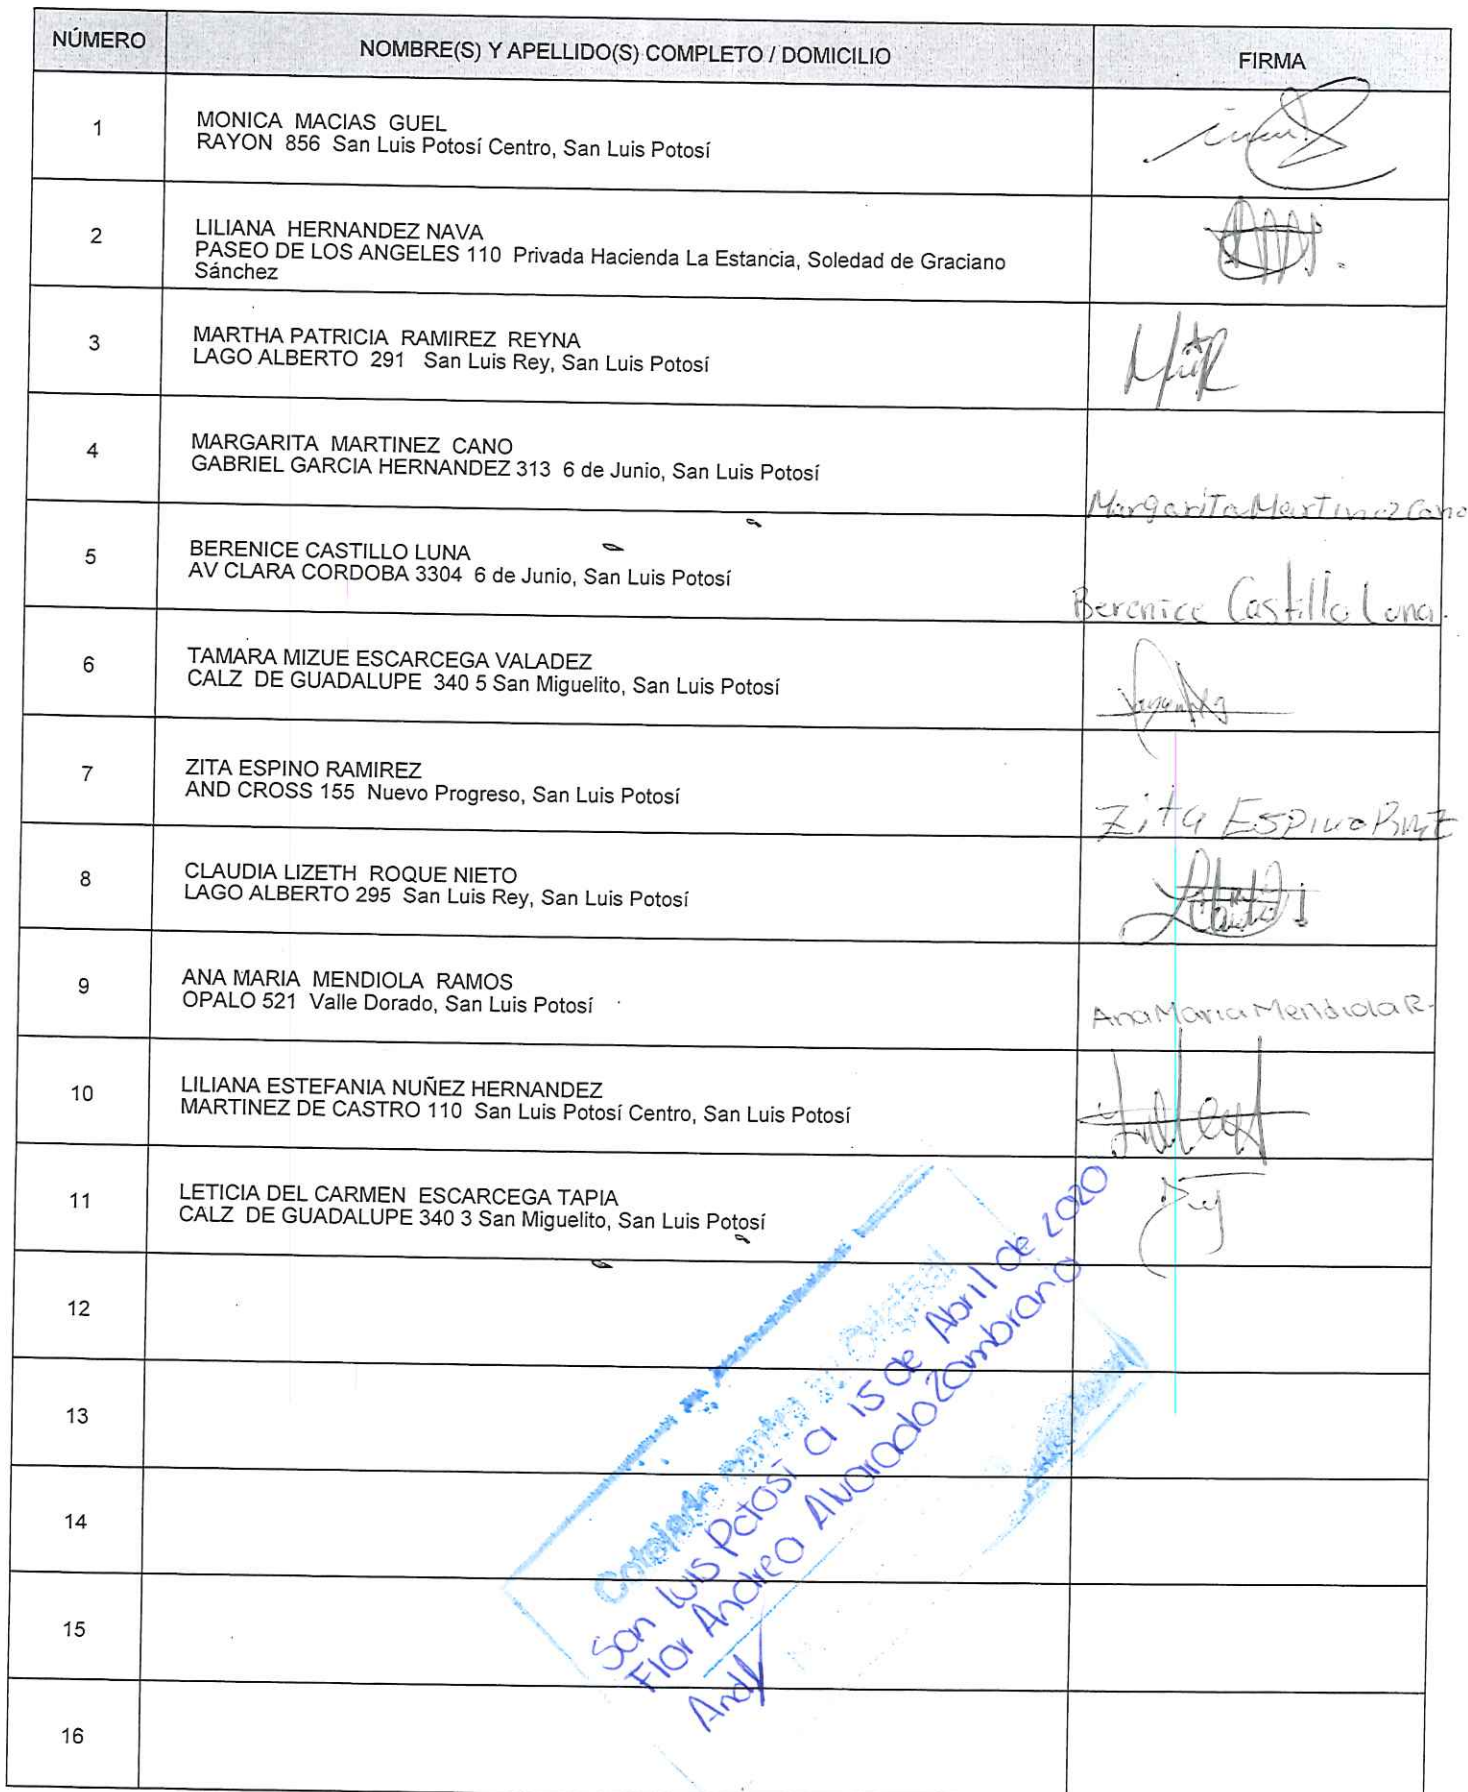 NÚMERO NOMBRE(S) Y APELLIDO(S) COMPLETO / DOMICILIO FIRMA
1 MONICA MACIAS GUEL
RAYON 856 San Luis Potosí Centro, San Luis Potosí
2 LILIANA HERNANDEZ NAVA
PASEO DE LOS ANGELES 110 Privada Hacienda La Estancia, Soledad de Graciano
Sánchez
3 MARTHA PATRICIA RAMIREZ REYNA
LAGO ALBERTO 291 San Luis Rey, San Luis Potosí
4 MARGARITA MARTINEZ CANO
GABRIEL GARCIA HERNANDEZ 313 6 de Junio, San Luis Potosí
Margarita Martinez Cano
5 BERENICE CASTILLO LUNA
AV CLARA CORDOBA 3304 6 de Junio, San Luis Potosí
Berenice Castillo Luna.
6 TAMARA MIZUE ESCARCEGA VALADEZ
CALZ DE GUADALUPE 340 5 San Miguelito, San Luis Potosí
7 ZITA ESPINO RAMIREZ
AND CROSS 155 Nuevo Progreso, San Luis Potosí
Zita ESPINO Rmz
8 CLAUDIA LIZETH ROQUE NIETO
LAGO ALBERTO 295 San Luis Rey, San Luis Potosí
9 ANA MARIA MENDIOLA RAMOS
OPALO 521 Valle Dorado, San Luis Potosí
Ana Maria Mendiola R.
10 LILIANA ESTEFANIA NUÑEZ HERNANDEZ
MARTINEZ DE CASTRO 110 San Luis Potosí Centro, San Luis Potosí
11 LETICIA DEL CARMEN ESCARCEGA TAPIA
CALZ DE GUADALUPE 340 3 San Miguelito, San Luis Potosí
12
13
14
15
16
Cotejado contra su Original
San Luis Potosí a 15 de Abril de 2020
Flor Andrea Alvarado Zambrano